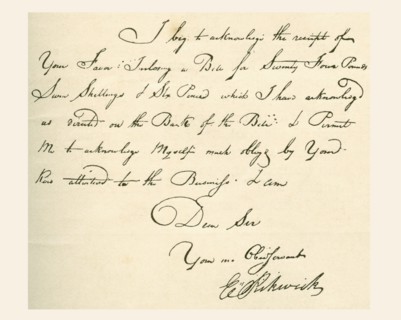 I beg to acknowledge the receipt of
Your Favor Inclosing a Bill for Seventy Four Pounds
Seven Shillings & Six Pence which I have acknowledg'd
as directed on the Back of the Bill: & Permit
Me to acknowledge Myself much oblig'd by Your
Kind attention to the Business. I am
Dear Sir
Your Obed Servant